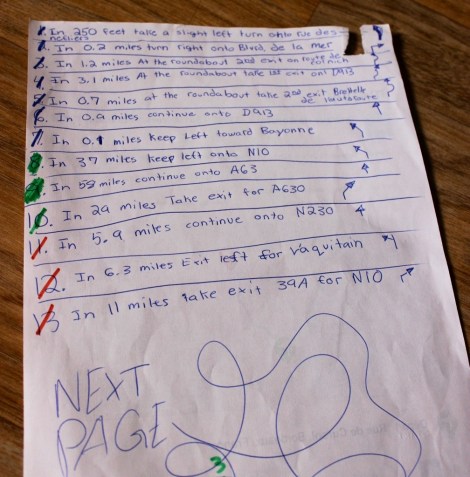 1. In 250 feet take a slight left turn onto Rue des
2. In 0.2 miles turn right onto Blvd. de la mer
3. In 1.2 miles At the roundabout 2nd exit on route de
4. In 3.1 miles At the roundabout take 1st exit onto D913
5. In 0.7 miles at the roundabout take 2nd exit
6. In 0.9 miles continue onto D913
7. In 0.1 miles Keep Left toward Bayonne
8. In 37 miles keep left onto N10
9. In 58 miles continue onto A63
10. In 29 miles Take exit for A630
11. In 5.9 miles continue onto N230
12. In 6.3 miles Exit left for l'aquitain
13 In 11 miles take exit 39A for N10
NEXT
PAGE
3